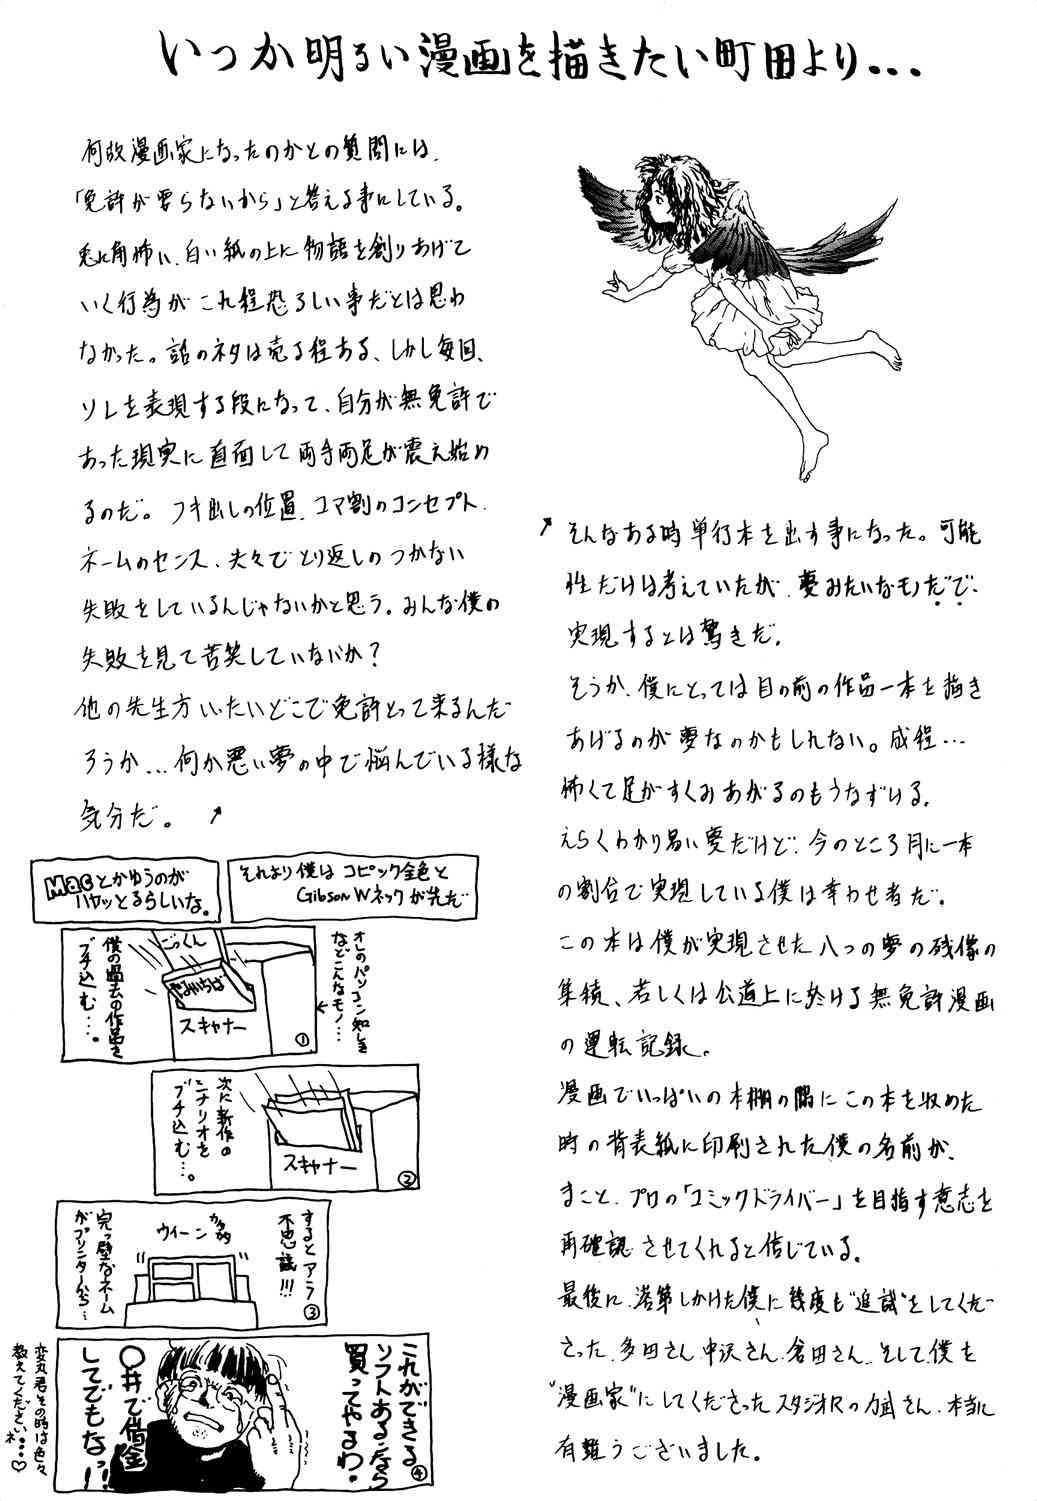 いつか明るい漫画を描きたい町田より...
何故漫画家になったのかとの質問には、
「免許が要らないから」と答える事にしている。
兎に角怖い、白い紙の上に物語を創りあげて
いく行為がこれ程恐ろしい事だとは思わ
なかった。話のネタは売る程ある、しかし毎回、
ソレを表現する段になって、自分が無免許で
あった現実に直面して両手両足が震え始め
るのだ。フキ出しの位置、コマ割のコンセプト、
ネームのセンス、夫々でとり返しのつかない
失敗をしているんじゃないかと思う。みんな僕の
失敗を見て苦笑していないか?
他の先生方いったいどこで免許とって来るんだ
ろうか...何か悪い夢の中で悩んでいる様な
気分だ。↗
↗そんなある時単行本を出す事になった。可能
性だけは考えていたが、夢みたいなモノだで、
実現するとは驚きだ。
そうか、僕にとっては目の前の作品一本を描き
あげるのが夢なのかもしれない。成程...
怖くて足がすくみあがるのもうなずける。
えらくわかり易い夢だけど、今のところ月に一本
の割合で実現している僕は幸わせ者だ。
この本は僕が実現させた八つの夢の残像の
集積、若しくは公道上に於ける無免許漫画
の運転記録。
漫画でいっぱいの本棚の隅にこの本を収めた
時の背表紙に印刷された僕の名前が、
まこと、プロの「コミックドライバー」を目指す意志を
再確認させてくれると信じている。
最後に、落第しかけた僕に幾度も“追試”をしてくだ
さった、多田さん、中沢さん、倉田さん、そして僕を
“漫画家”にしてくださったスタジオRの力武さん、本当に
有難うございました。
Macとかゆうのが
ハヤッとるらしいな。
それより僕はコピック全色と
GibsonWネックが先だ
オレのパソコン知しき
などこんなモノ...
僕の過去の作品を
ブチ込む...。
ごっくん
やみいちば
スキャナー
①
次に新作の
シナリオを
ブチ込む...。
スキャナー
②
するとアラ
不思議!!!
ウィーン
完っ璧なネーム
がプリンターから...
③
これができる
ソフトあるなら
買ってやるわ。
〇井で借金
してでもなっ!!
④
その時は色々
教えてくださいネ...♡